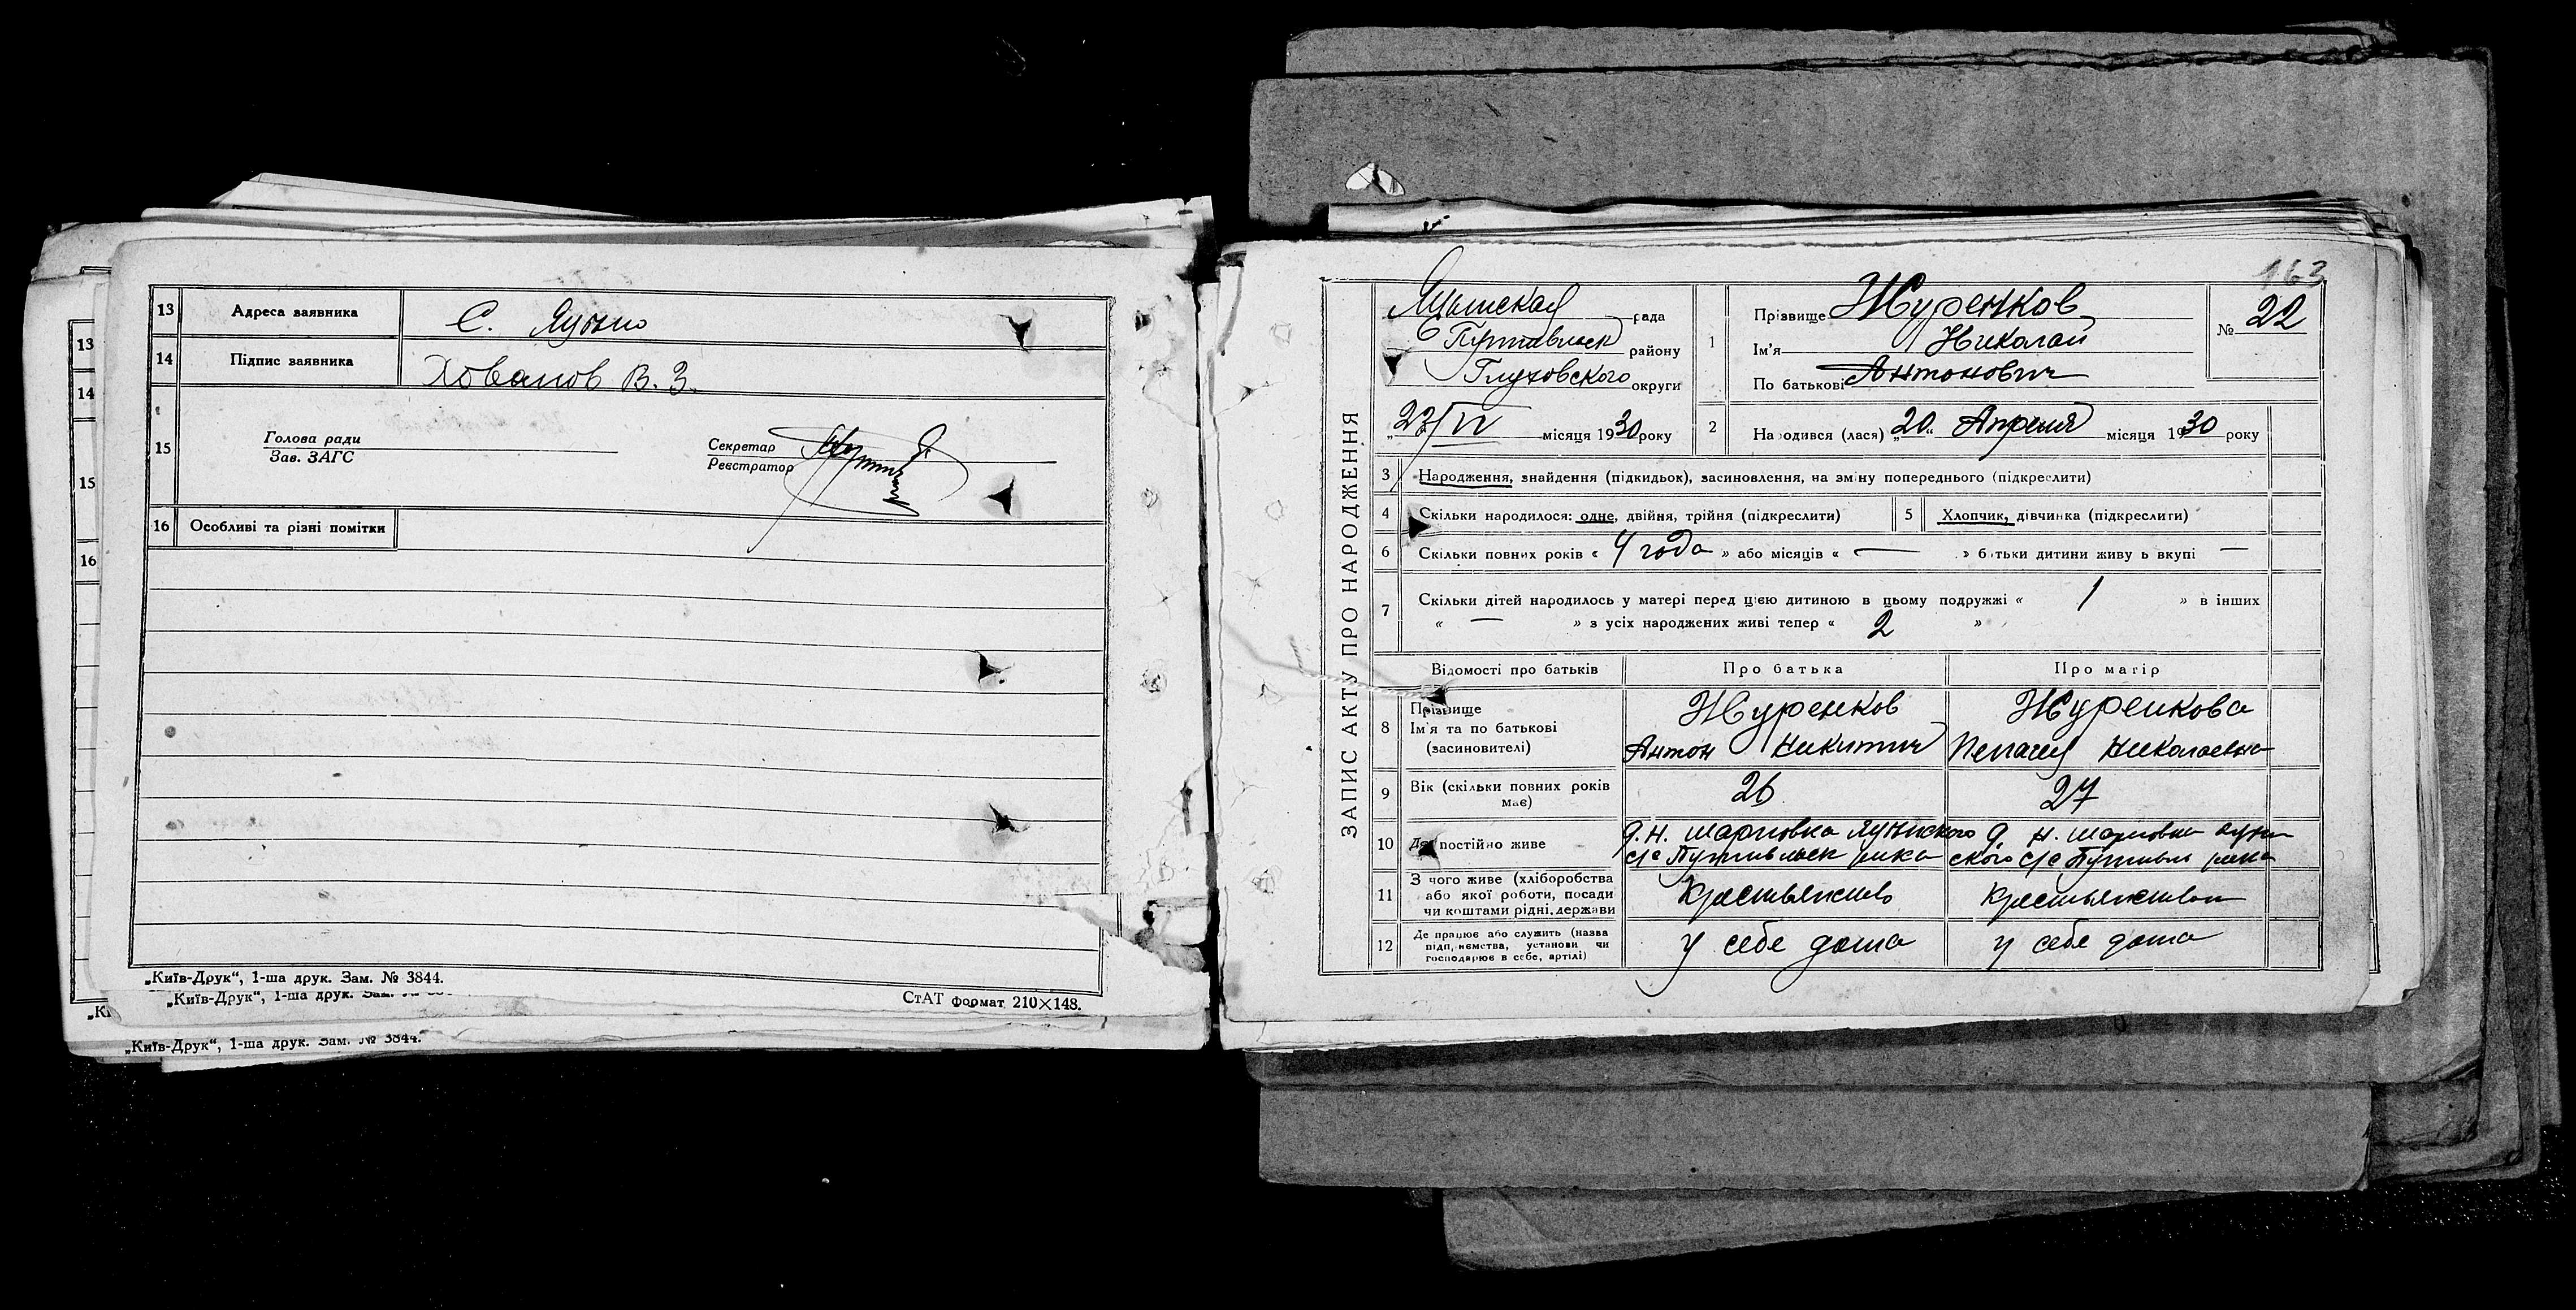 13 Адреса заявника С. Яцыно
14 Підпис заявника Хованов В. З.
15 Голова ради
Зав. ЗАГС
Секретар
Реєстратор
16 Особливі та різні помітки
„Київ-Друк“, 1-ша друк. Зам. № 3844.
„Київ-Друк“, 1-ша друк.
СтАТ формат 210×148.
„Київ-Друк“, 1-ша друк. Зам. № 3844.
13
14
15
16
163
ЗАПИС АКТУ ПРО НАРОДЖЕННЯ
Яцынская рада
Путивльск району
Глуховского округи
„23/IV місяця 1930 року
1 Прізвище Журенков
Ім'я Николай
По батькові Антонович
№ 22
2 Народився (лася) „20“ Апреля місяця 1930 року
3 Народження, знайдення (підкидьок), засиновлення, на зміну попереднього (підкреслити)
4 Скільки народилося: одне, двійня, трійня (підкреслити) 5 Хлопчик, дівчинка (підкреслити)
6 Скільки повних років « 4 года » або місяців « — » батьки дитини живуть вкупі —
7 Скільки дітей народилось у матері перед цією дитиною в цьому подружжі « 1 » в інших
« — » з усіх народжених живі тепер « 2 »
Відомості про батьків Про батька Про матір
8 Прізвище Журенков Журенкова
Ім'я та по батькові Антон Никитич Пелагея Николаевна
(засиновителі)
9 Вік (скільки повних років 26 27
має)
10 Де постійно живе д. Н. Шарповка Яцынского д. Н. Шарповка Яцын
с/с Путивльск р-ка ского с/с Путивль р-ка
11 З чого живе (хліборобства
або якої роботи, посади Крестьянство Крестьянством
чи коштами рідні, держави
12 Де працює або служить (назва
підприємства, установи чи у себе дома у себе дома
господарює в себе, артілі)